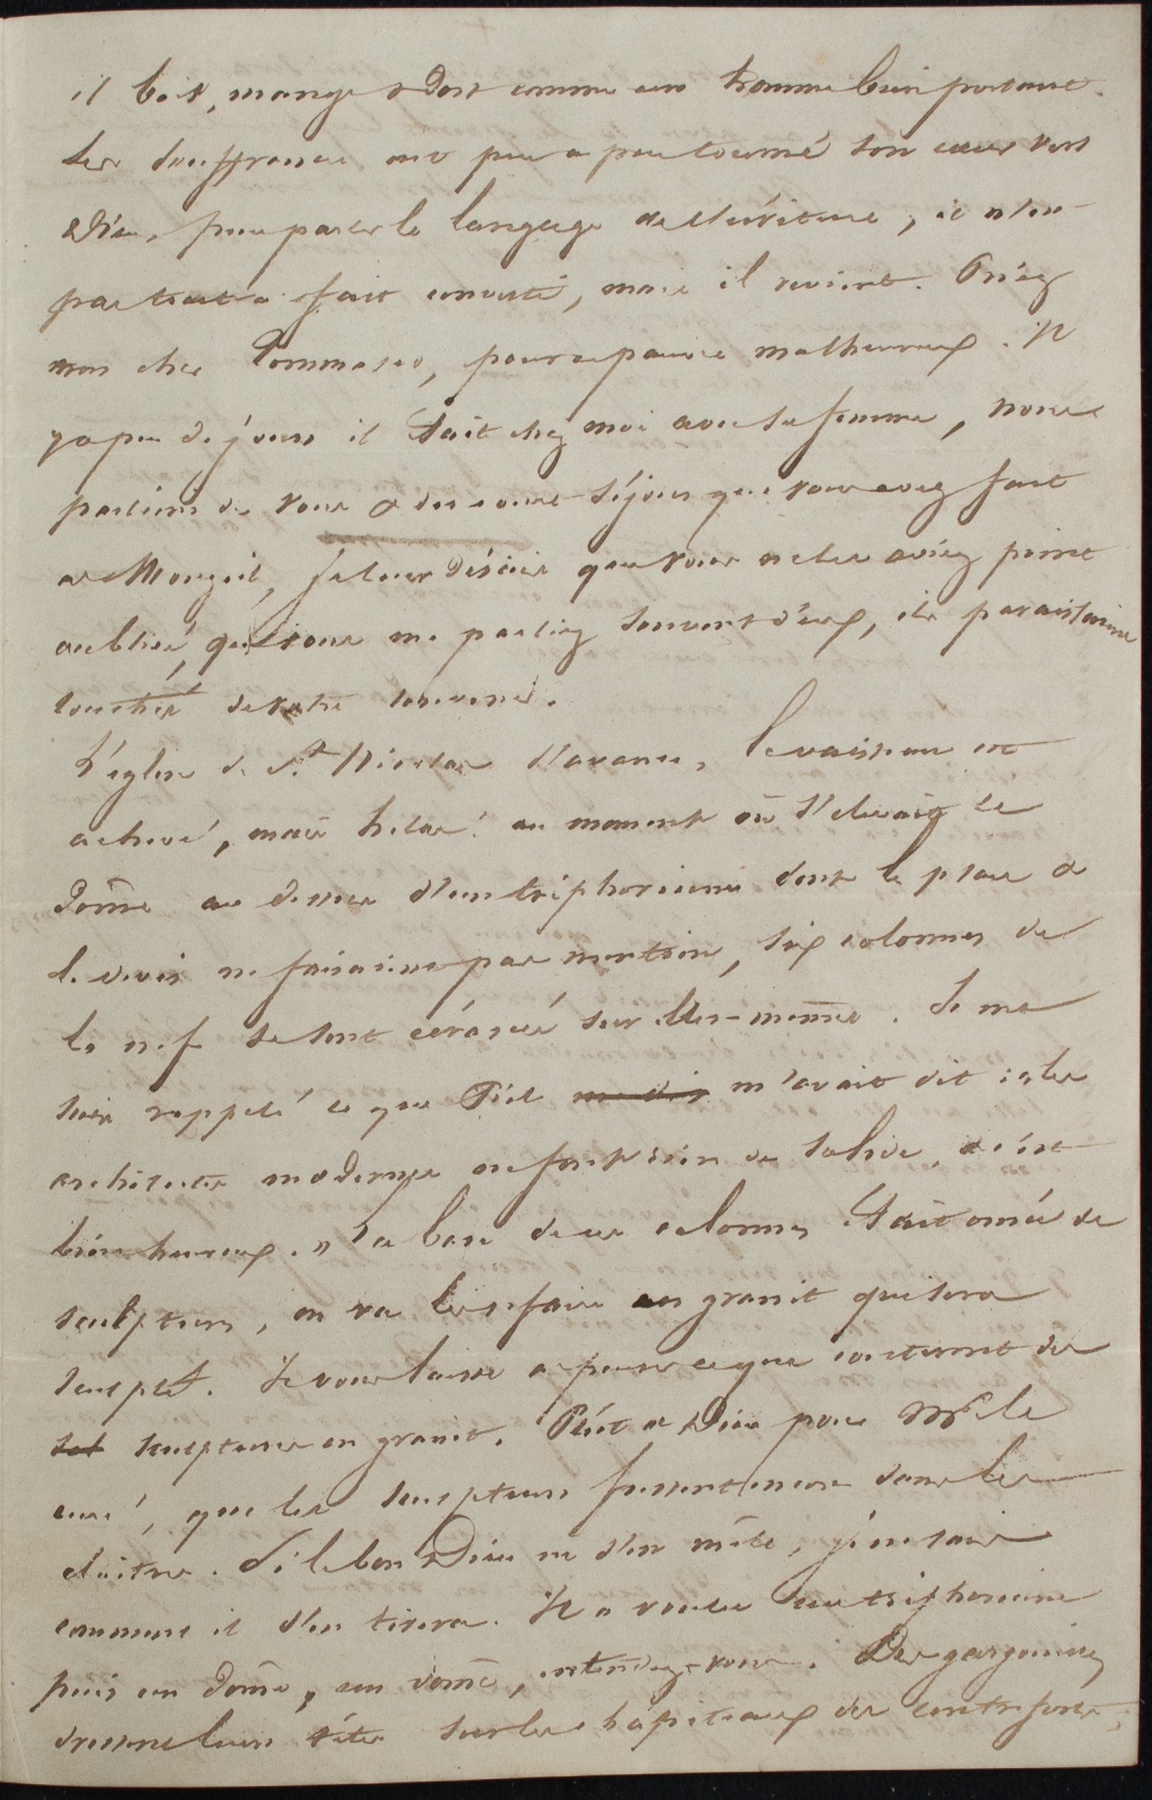 il boit, mange & dort comme un homme bien portant.
Les souffrances ont peu a peu tourné son cœur vers
Dieu, pour parler le langage de l'écriture, il n'est
pas tout a fait converti, mais il revient. Priez
mon cher Tommaseo, pour ce pauvre malheureux. Il
y a peu de jours il était chez moi avec sa femme, nous
parlions de vous & des courts séjours que vous avez fait
a, je leur disais que vous ne les aviez point
oublié, que vous me parliez souvent d'eux, ils paraissaient
touchés de votre souvenir.
L'église de St Nicolas s'avance, le vaisseau est
achevé, mais helas! au moment où s'elevait le
dôme au dessus d'un triphorium dont le plan &
le devis ne faisaient pas mention, six colonnes de
la nef se sont écrasées sur elles-mêmes. Je me
suis rappelé ce que Piel m'avait dit : « les
architectes modernes ne font rien de solide, & c'est
bien heureux. » La base de ces colonnes était ornée de
sculptures, on va les refaire en granit qui sera
sculpté. Je vous laisse a penser ce que coutent des
sculptures en granit. Plût a Dieu pour Mr le
curé, que les sculptures fussent encore dans les
. Si le bon Dieu ne s'en mêle, je ne sais
comment il s'en tirera. Il a voulu un triphorium
puis un dôme, un dôme, entendez-vous. Des gargouilles
dressent leurs têtes sur les chapiteaux des contreforts,